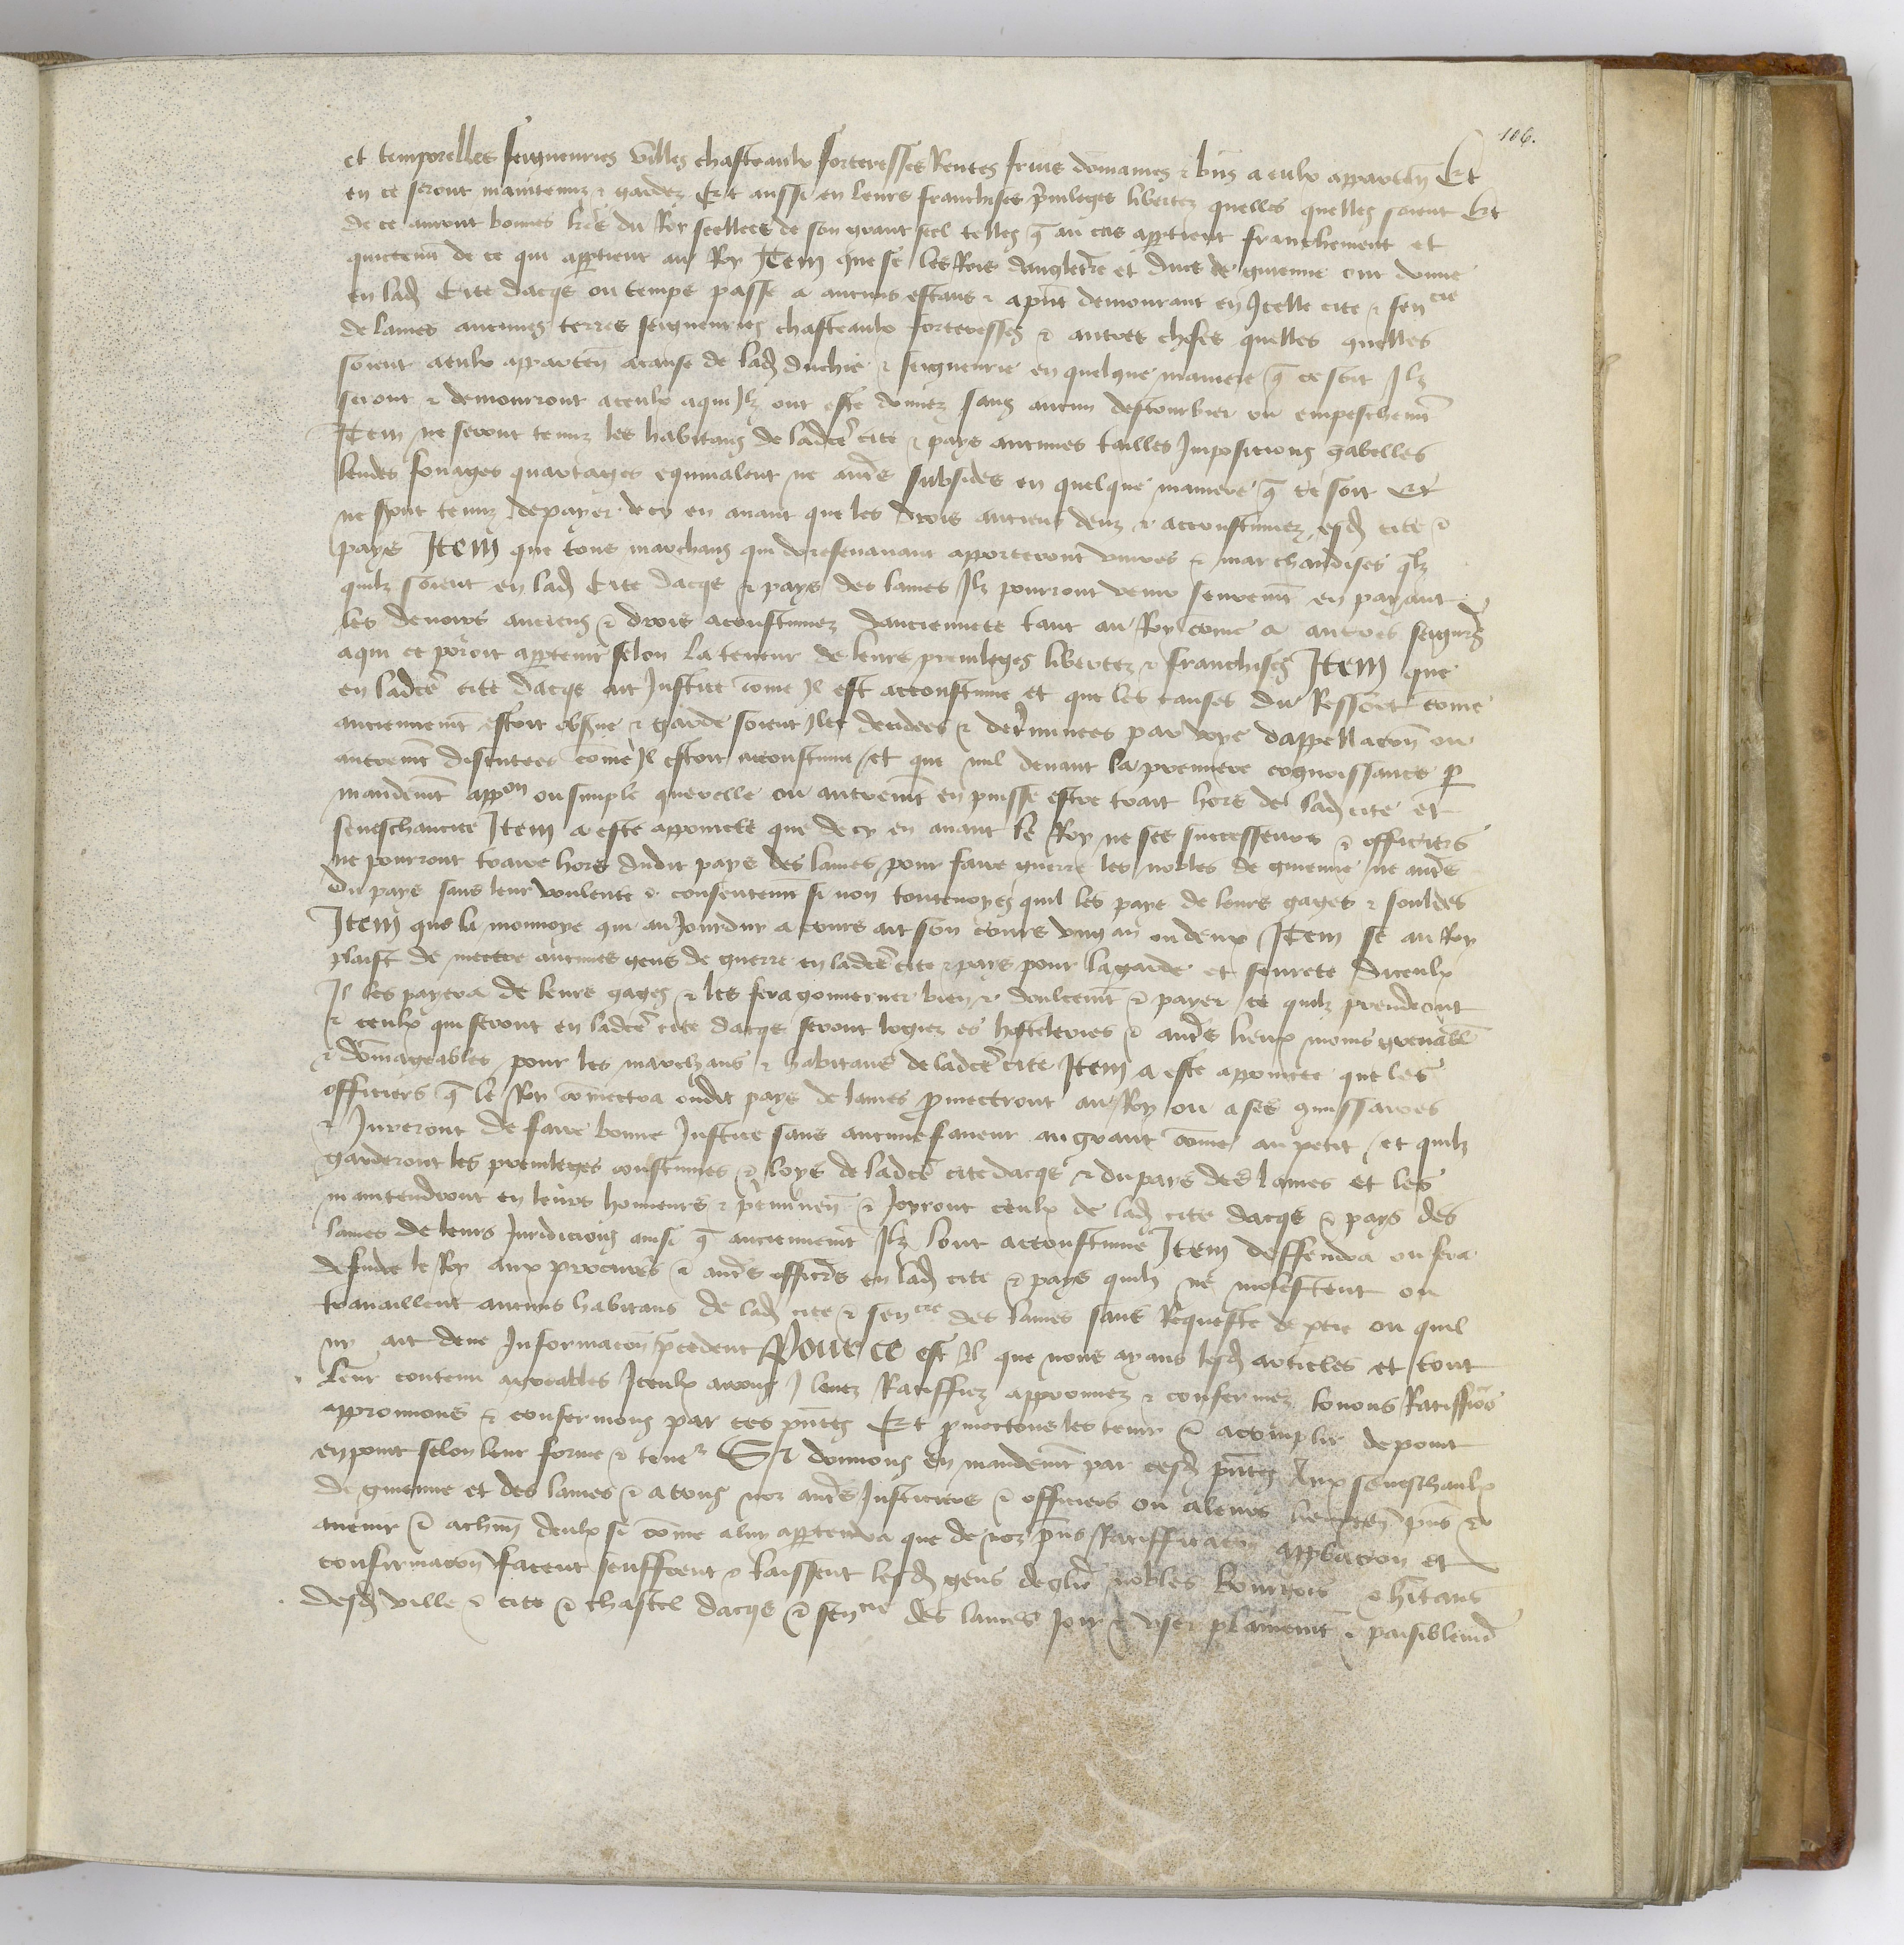 106.
et temporelles seigneuries villes chasteaulx forteresses Rentes fruis domaines & biẽs a eulx apparteñ Et
en ce seront maintenuz & gardez Et aussi en leurs franchises p̃uileges libertez quelles quelles soient Et
de ce auront bonnes lr̃es du Roy scellees de son grant seel telles q̃ au cas ap̃tient franchement et
quictem̃ de ce qui ap̃tient au Roy Item que se les Rois dangleterre et ducs de guienne ont donne
en lad̃ Cite dacqs ou temps passe a aucuns estans & a p̃nt demourant en Icelle cite & senᶜⁱᵉ
de lames aucunes terres seigneuries chasteaulx forteresses & autres choses quelles quelles
soient a eulx apparteñ a cause de lad̃ duchie & seigneurie en quelque maniere q̃ ce soit Ilz
seront & demourront a ceulx a qui Ilz ont este donnez sans aucun destourbier ou empeschem̃t
Item ne seront tenuz les habitans de ladcẽ cite & pays aucunes tailles Imposicions gabelles
fouages quartages equiualent ne autr̃s subsides en quelque maniere q̃ ce soit Et
ne s̃ont tenuz de payer de cy en auant que les drois anciens deuz & accoustumez esd̃ cite &
pays Item que tous marchans qui doresenauant apporteront viures & marchandises q̃lz
quilz soient en lad̃ Cite dacqs & pays des lames Ilz pourront venir seurem̃t en payant
les deuoirs anciens & drois acoustumez danciennete tant au Roy cõme a autres seigñrs
a qui ce põroit ap̃tenir selon la teneur de leurs preuileges libertez & franchises Item que
en ladcẽ cite dacqs ait Justice cõme Il est accoustume et que les causes du Ressort cõme
anciennem̃t estoit obs̃ue & garde soient Ilec decidees & det̃minees par voye dappellacoñ ou
autrem̃t discutees cõme Il estoit acoustume / et que nul deuant la premiere cognoissance p̃
mandem̃t appᵒⁿ ou simple querelle ou autrem̃t en puisse estre trait hors de lad̃ cite et
seneschaucie Item a este appoincte que de cy en auant le Roy ne ses successeurs & officiers
ne pourront traire hors dudit pays des lames pour faire guerre les nobles de guienne ne autr̃s
du pays sans leur voulente & consentem̃t si non toutesuoyes quil les paye de leurs gages & souldes
Item que la monnoye qui au Jourduy a cours ait son cours vng an ou deux Item se au Roy
plaist de mectre aucunes gens de guerre en ladcẽ cite & pays pour la garde et seurete diceulx
Il les payera de leurs gages & les fera gouuerner bien & doulcem̃t & payer ce quilz prendront
& ceulx qui seront en ladcẽ cite dacqs seront logiez es hostelleries & autr̃s lieux moins greuabl̃
& dõmageables pour les marchans & habitans de ladcẽ cite Item a este appoincte que les
officiers q̃ le Roy cõmectra oudit pays de lames p̃mectront au Roy ou a ses cõmissaires
& Jureront de faire bonne Justice sans aucune faueur au grant cõme au petit / et quilz
garderont les preuileges coustumes & loys de ladcẽ cite dacqs & du pays des lames et les
maintendront en leurs honneurs & p̃emineñ & Joyront ceulx de lad̃ cite dacqs & pays des
lames de leurs Juridicions ainsi q̃ anciennem̃t Ilz lont accoustume Item deffendra ou fera
defendre le Roy aux procur̃s & autr̃s offic̃rs en lad̃ cite & pays quilz ne molestent ou
trauaillent aucuns habitans de lad̃ cite & senᶜⁱᵉ des lames sans Requeste de p̃tie ou quil
ny ait deue Informacoñ p̃cedent Pour ce est Il que nous ayans lesd̃ articles et tout
leur contenu agreables Iceulx auons louez Ratiffiez approuuez & confermez louons Ratiffiõs
approuuons & confermons par ces p̃ntes Et p̃mectons les tenir & acomplir de point
en point selon leur forme & teneʳ Si donnons en mandem̃t par cesd̃ p̃ntes Aux seneschaulx
de guienne et des lames & a tous noz autr̃s Justiciers & officiers ou a leurs lieuxteñ p̃ns &
auenir & a chũn deulx si cõme a luy ap̃tendra que de noz p̃ns Ratifficacoñ app̃bacion et
confirmacoñ facent seuffrent & laissent lesd̃ gens deglĩe nobles Bourgois & hĩtans
desd̃ ville & cite & chastel dacqs & senᶜⁱᵉ des lames Joir & vser plainem̃t & paisiblem̃t